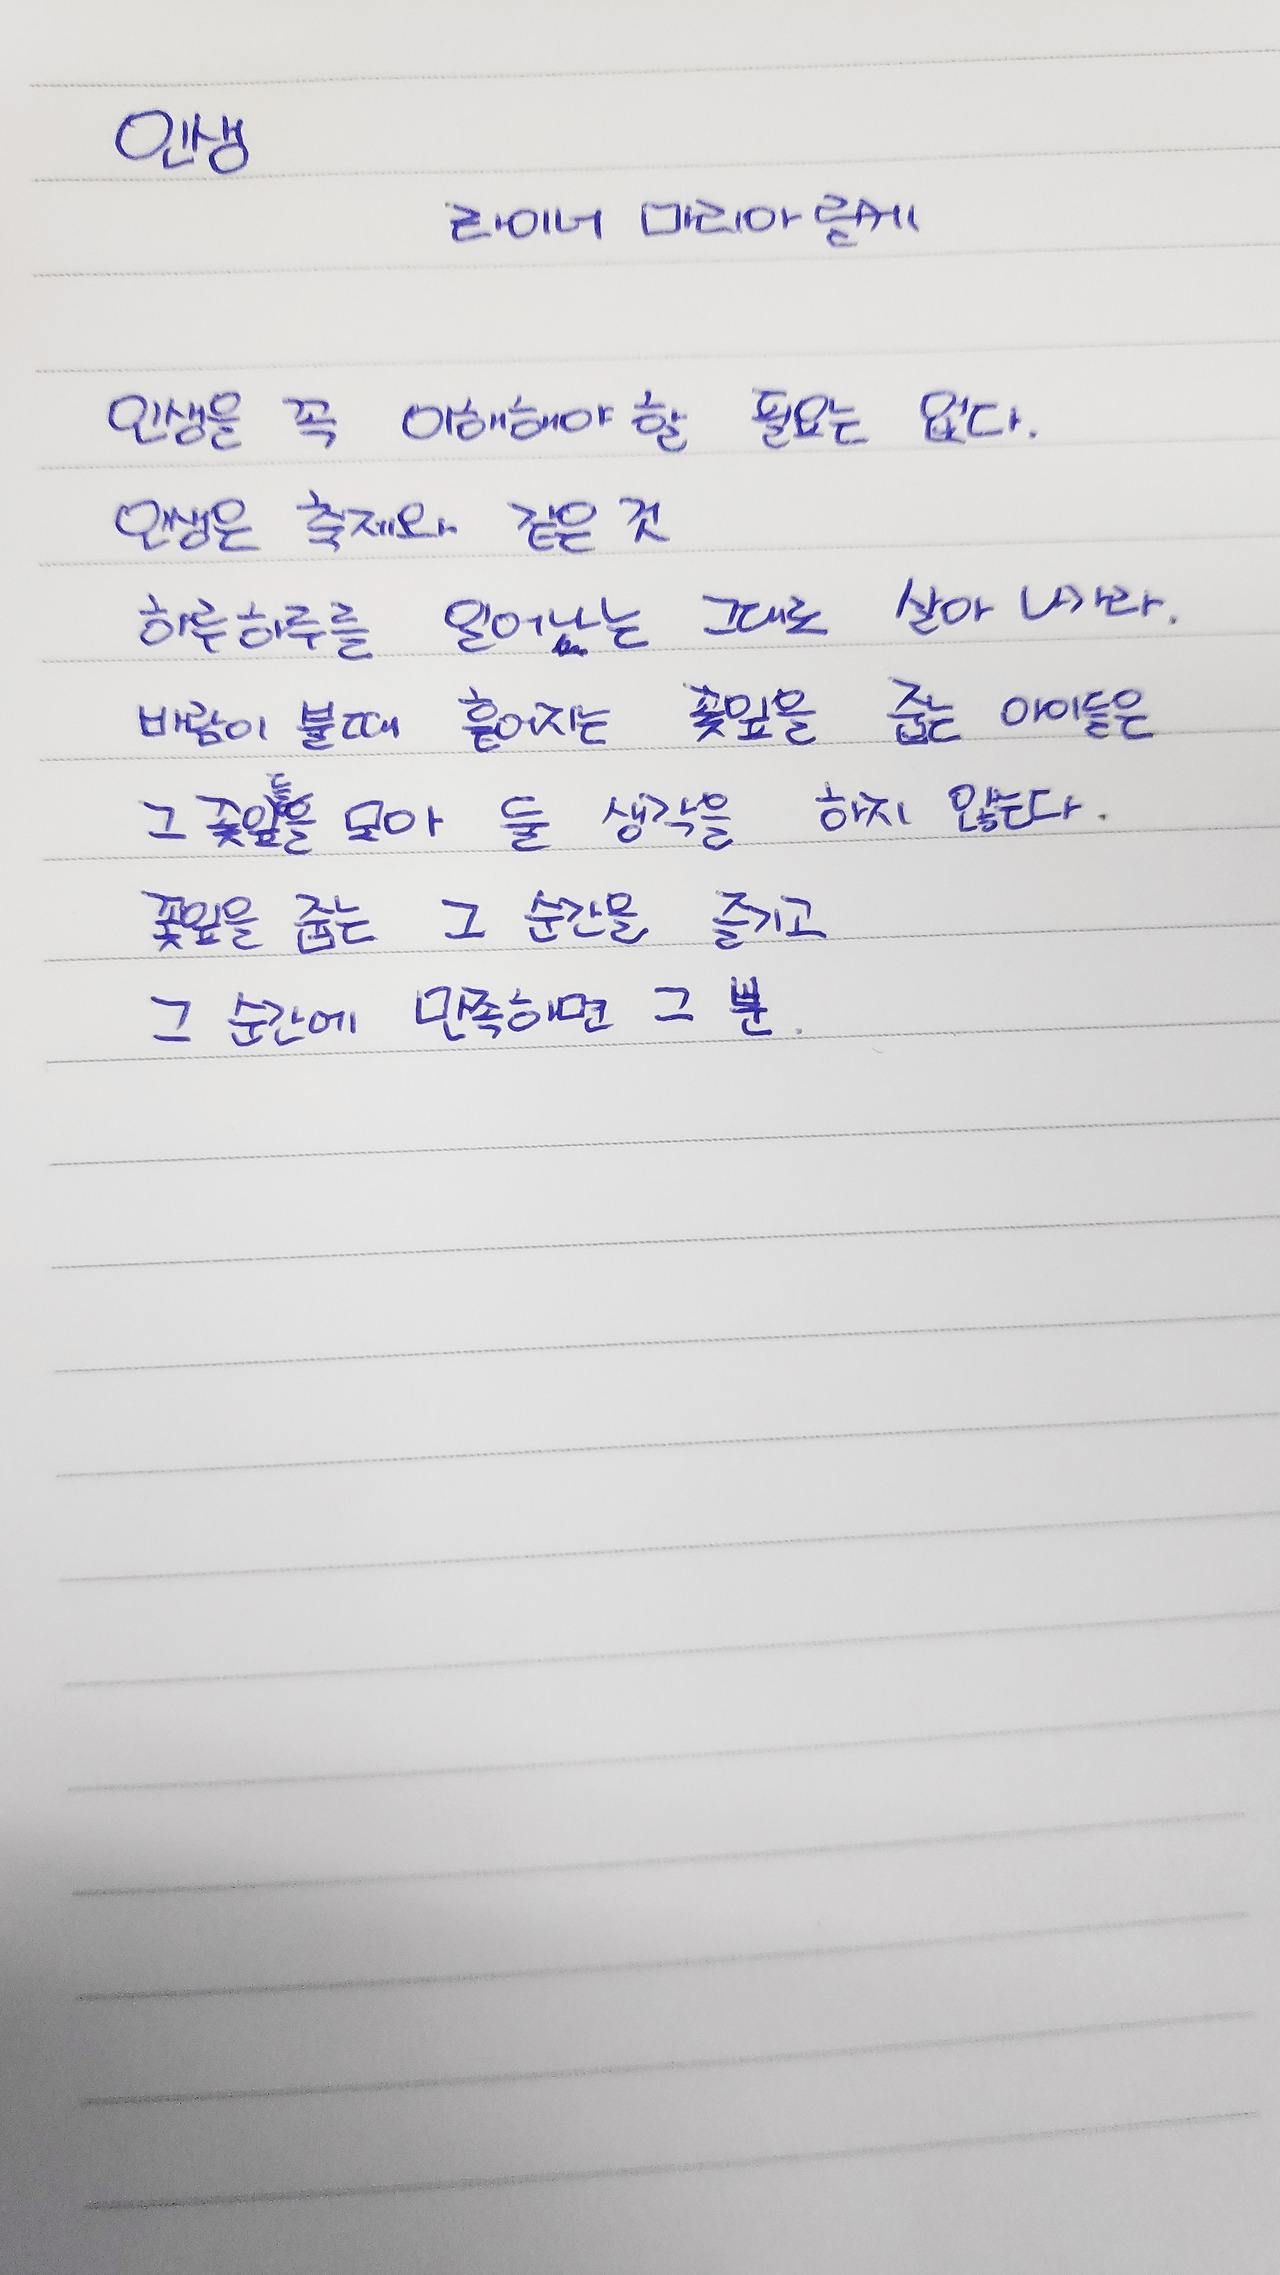 인생
라이너 마리아 릴케
인생을 꼭 이해해야 할 필요는 없다.
인생은 축제와 같은 것
하루하루를 일어나는 그대로 살아 나가라.
바람이 불때 흩어지는 꽃잎을 줍는 아이들은
그 꽃잎들을 모아 둘 생각을 하지 않는다.
꽃잎을 줍는 그 순간을 즐기고
그 순간에 만족하면 그 뿐.